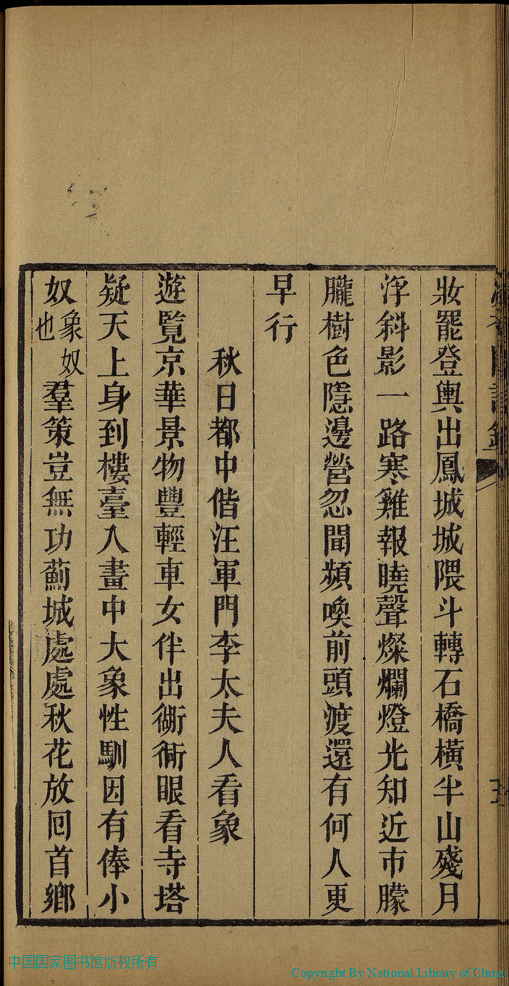 妝罷登輿出鳳城城隈斗轉石橋橫半山殘月
浮斜影一路寒雞報曉聲燦爛燈光知近市朦
朧樹色隱邊營忽聞頻喚前頭渡還有何人更
早行
秋日都中偕汪軍門李太夫人看象
遊覽京華景物豐輕車女伴出衚衕眼看寺塔
疑天上身到樓臺入畫中大象性馴因有俸小
奴象奴也羣策豈無功薊城處處秋花放回首鄉
中国国家图书馆版权所有
Copyright By National Library of China